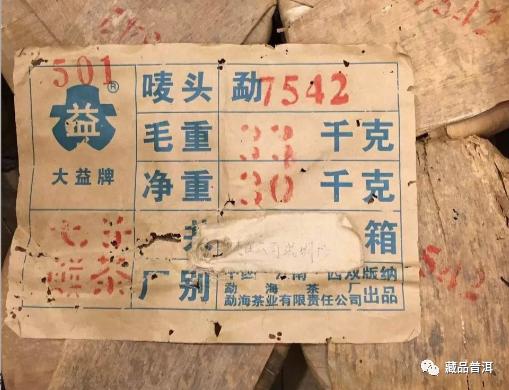 501
唛头 勐7542
益®
大益牌
毛重 33 千克
净重 30 千克
箱
饼茶
厂别
中国 云南 西双版纳
勐海茶厂
勐海茶业有限责任公司 出品
542
藏品普洱